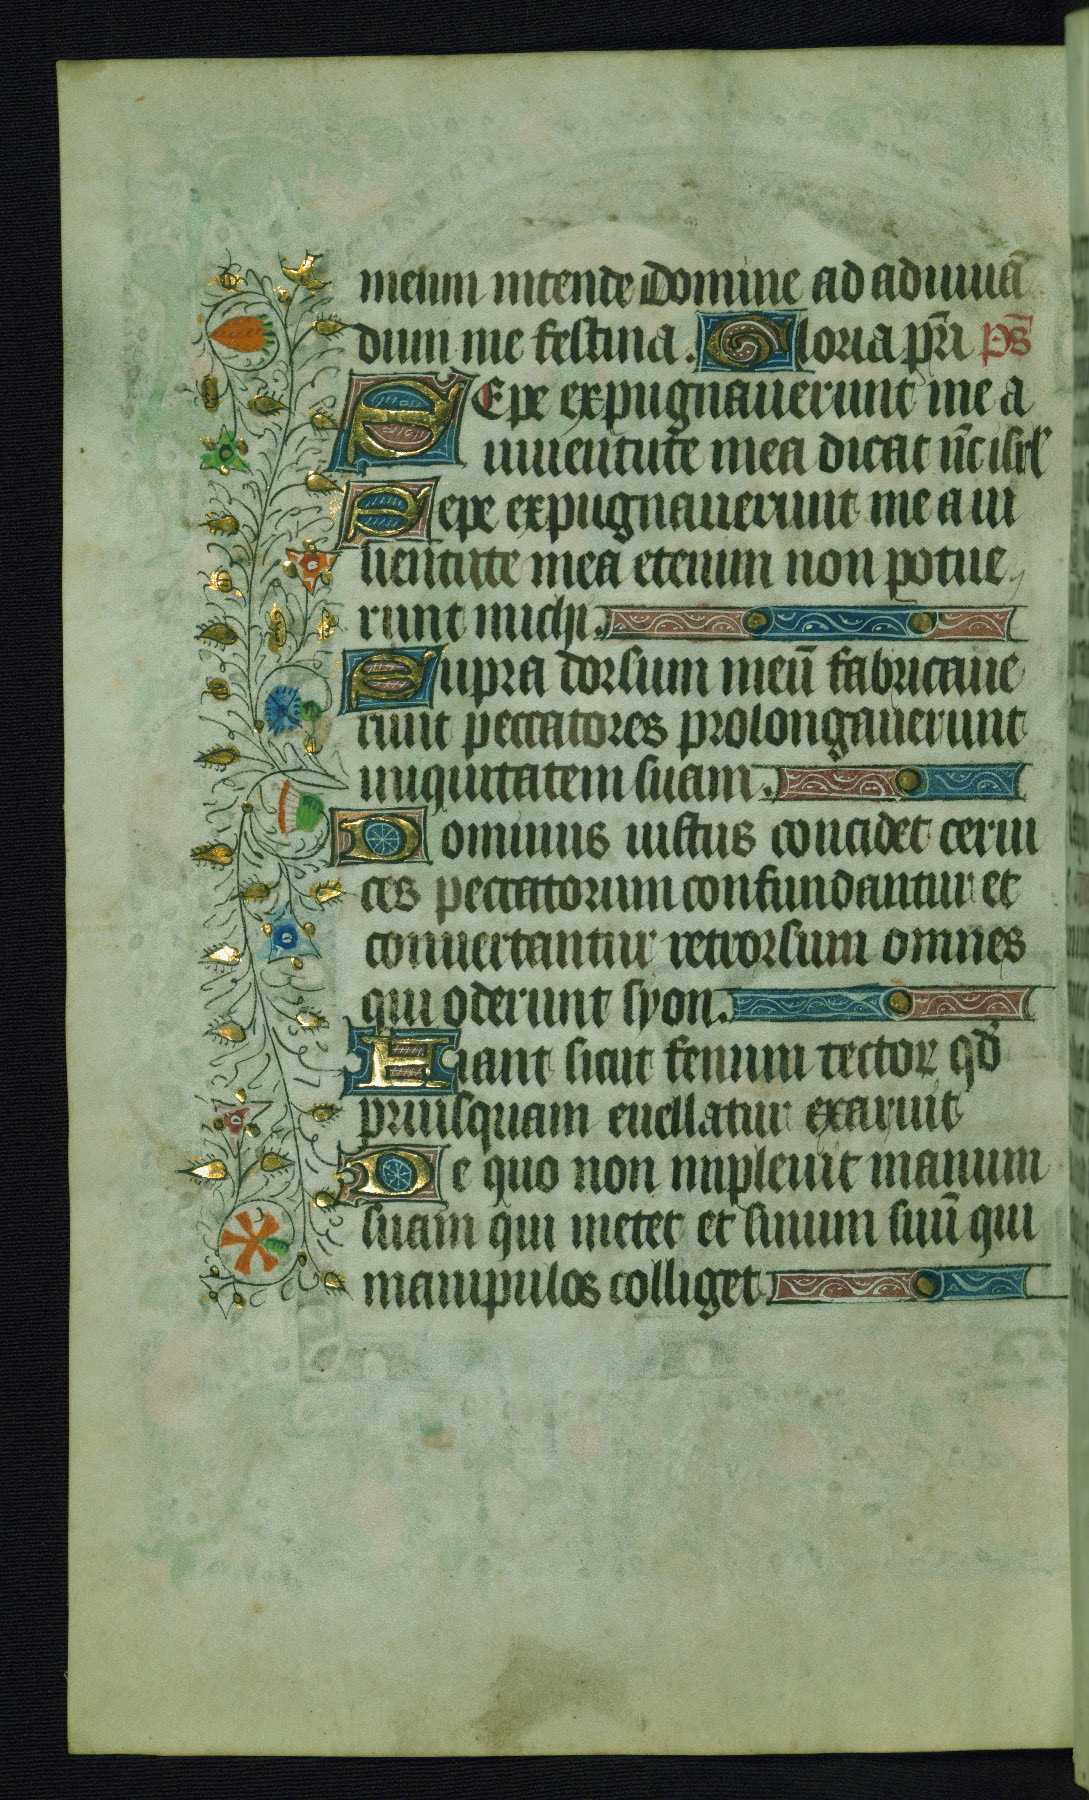 meum intende Domine ad adiuuā
dum me festina. Gloria pr̄i ps̄
SEpe expugnauerunt me a
iuuentute mea dicat nc̄ isrl̄
Sepe expugnauerunt me a iu
uentute mea etenim non potue
runt michi.
Supra dorsum meū fabricaue
runt peccatores prolongauerunt
iniquitatem suam.
Dominus iustus concidet cerui
ces peccatorum confundantur et
conuertantur retrorsum omnes
qui oderunt syon.
Fiant sicut fenum tector qd̄
priusquam euellatur exaruit
De quo non impleuit manum
suam qui metet et sinum suū qui
manipulos colliget